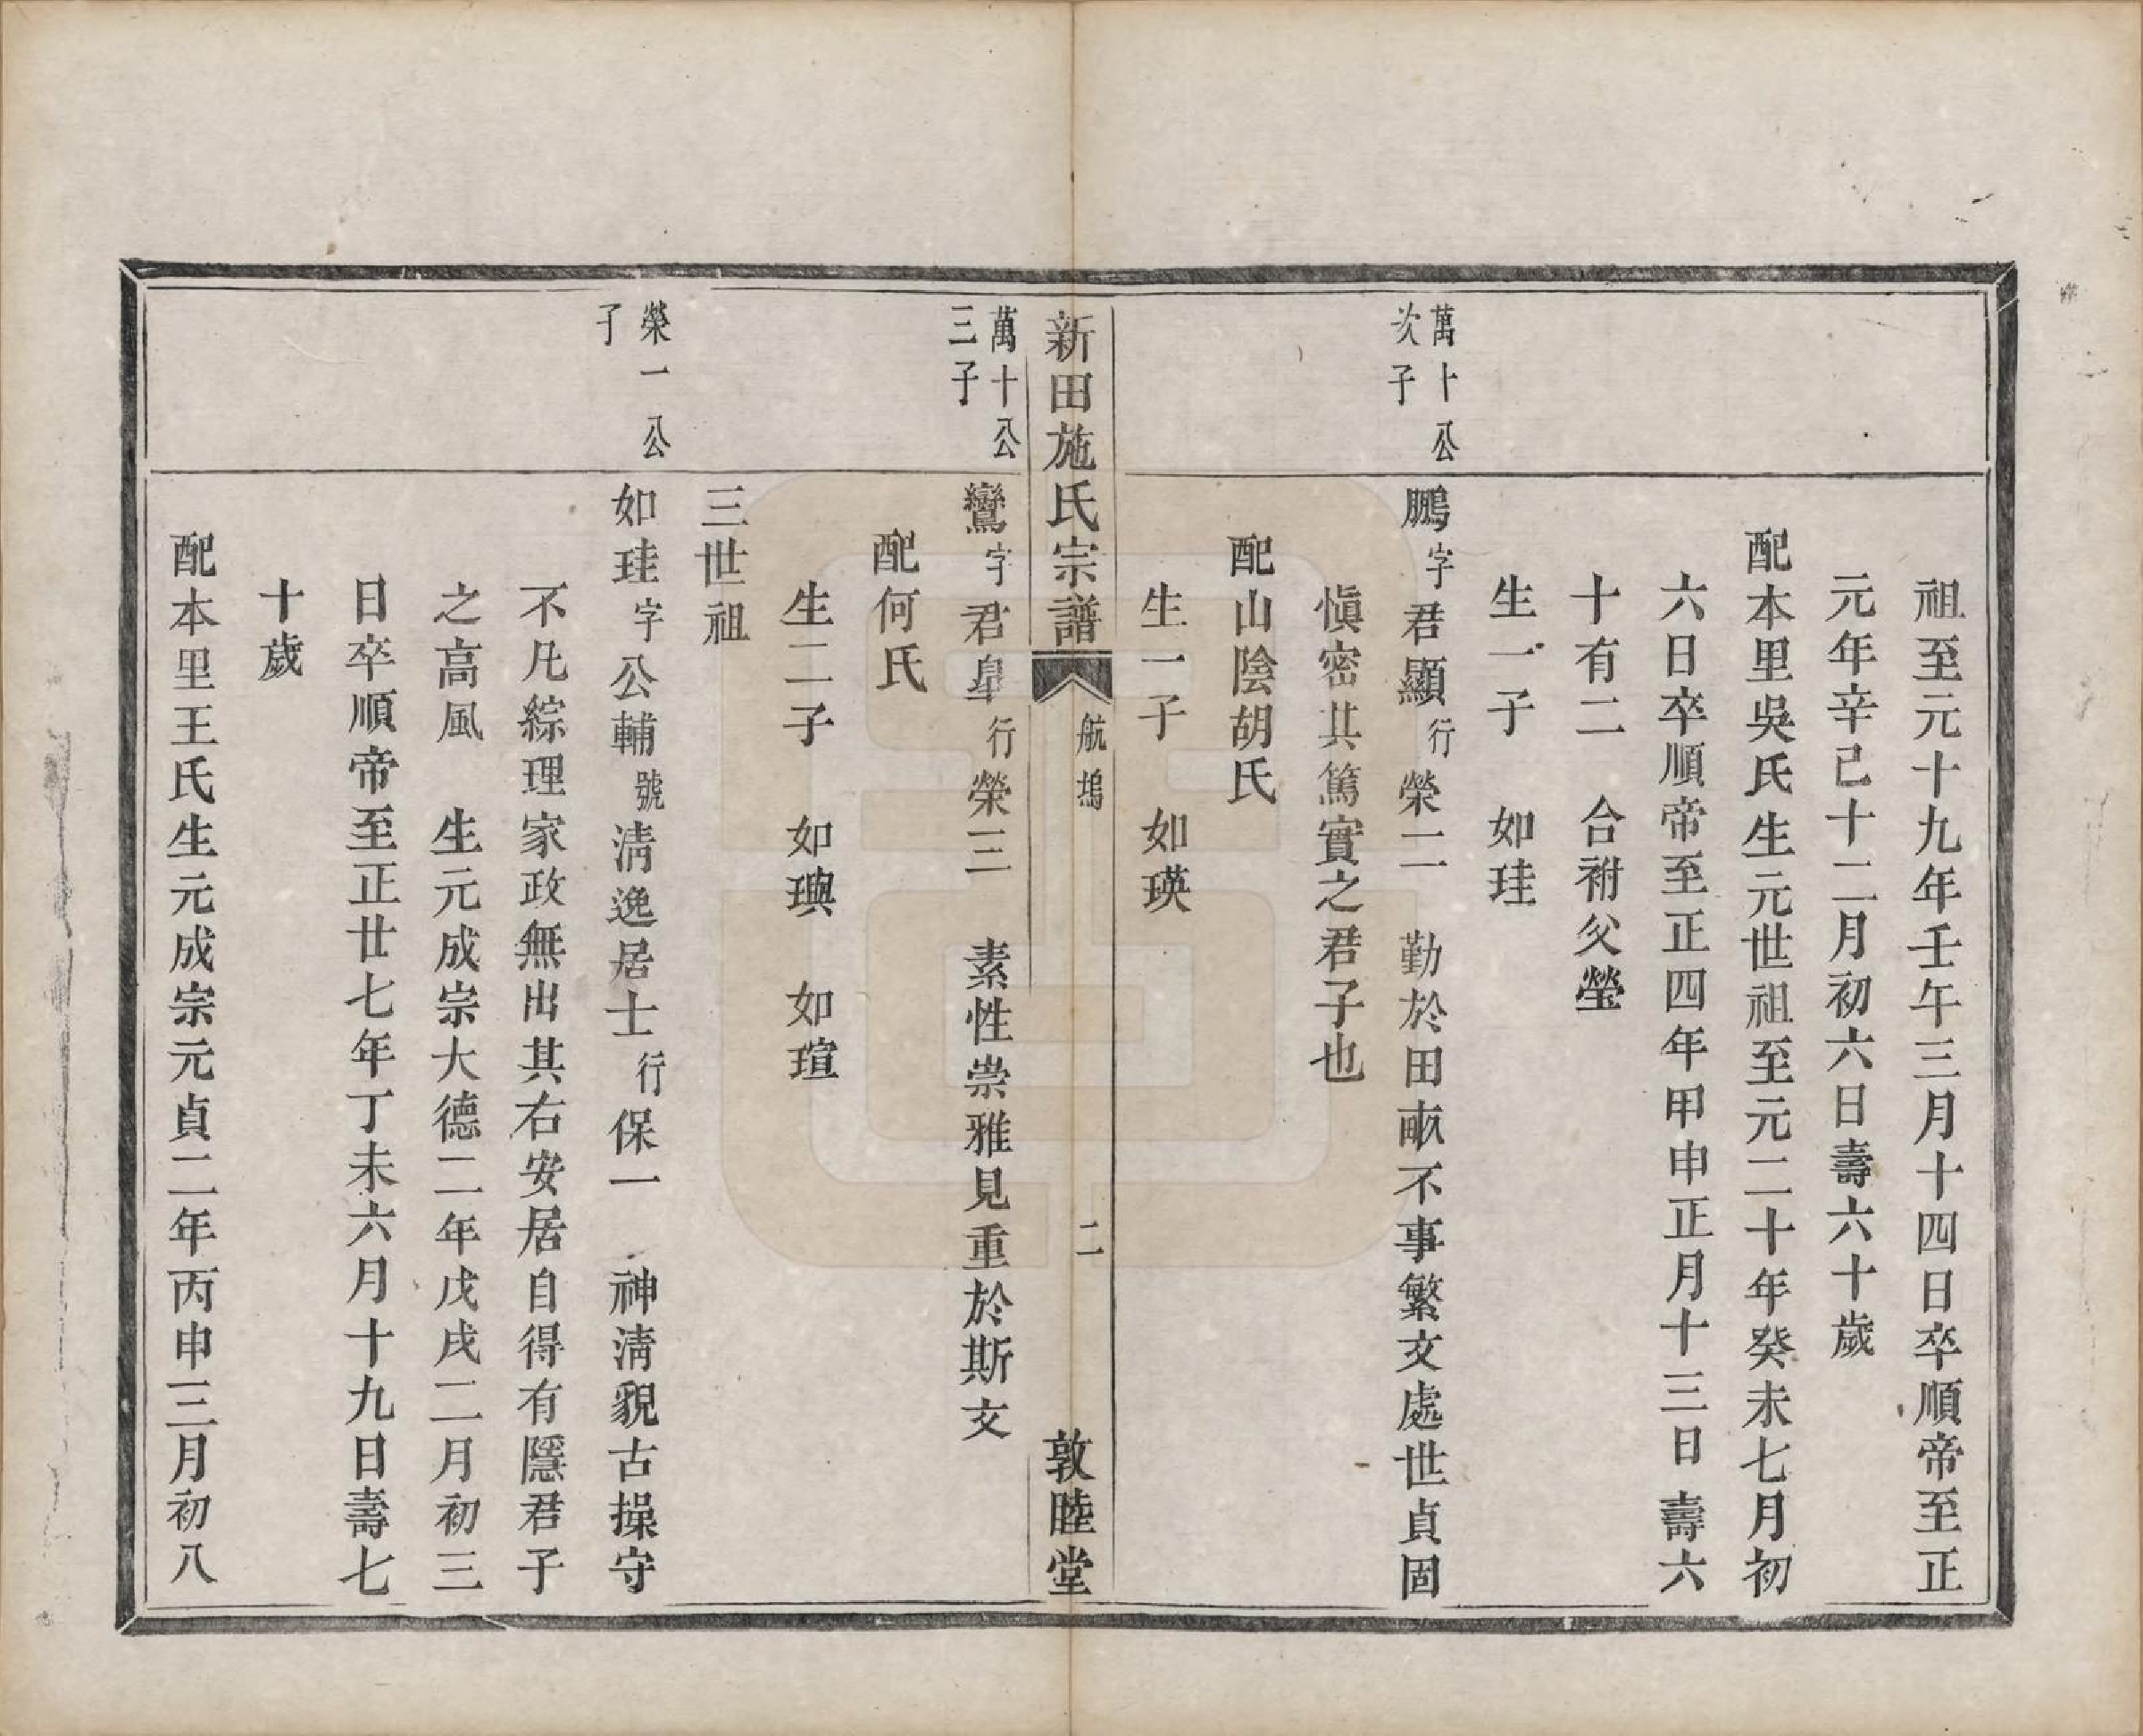 祖至元十九年壬午三月十四日卒順帝至正
元年辛己十二月初六日壽六十歲
配本里吳氏生元世祖至元二十年癸未七月初
六日卒順帝至正四年甲申正月十三日壽六
十有二　合祔父瑩
生一子　如珪
萬十公
次子
鵬字君顯行榮二　勤於田畝不事繁文處世貞固
愼密其篤實之君子也
配山陰胡氏
生一子　如瑛
新田施氏宗譜　航塢　二　敦睦堂
萬十公
三子
鸞字君臯行榮三　素性崇雅見重於斯文
配何氏
生二子　如璵　如瑄
三世祖
榮一公
子
如珪字公輔號淸逸居士行保一　神淸貌古操守
不凡綜理家政無出其右安居自得有隱君子
之高風　生元成宗大德二年戊戌二月初三
日卒順帝至正廿七年丁未六月十九日壽七
十歲
配本里王氏生元成宗元貞二年丙申三月初八